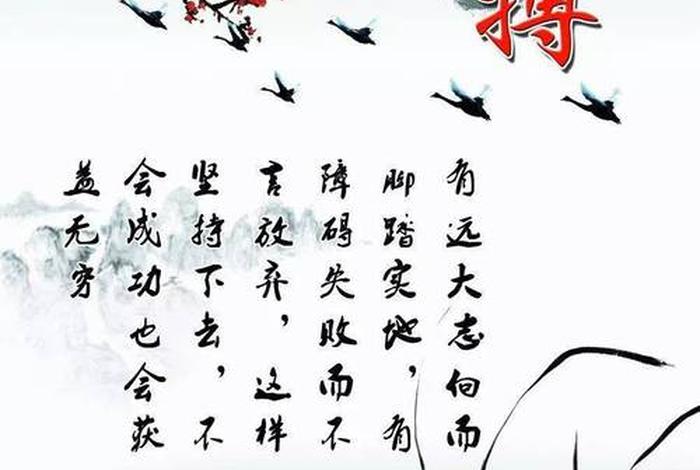 搏
有远大志向而
脚踏实地，有
障碍失败而不
言放弃，这样
坚持下去，不
会成功也会获
益无穷